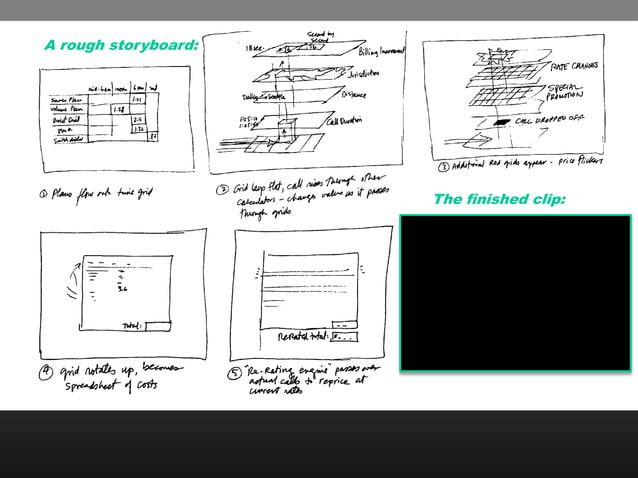 A rough storyboard:
noon
6 pm
Source Plan
1.21
Volume Plan
1.28
2.11
1.36
① Plans flow onto time grid
18 sec.
Second by second
Billing Increment
Jurisdiction
Dallas to Seattle
Distance
Call Duration
② Grid lays flat, call rises through other
calculators - changes value as it passes
through grids
RATE CHANGES
SPECIAL
PROMOTION
CALL DROPPED OFF
③ Additional Red grids appear - price flickers
The finished clip:
3.6
Total:
④ grid rotates up, becomes
spreadsheet of costs
ReRated total:
⑤ "Re-Rating engine" passes over
actual calls to reprice at
current rates